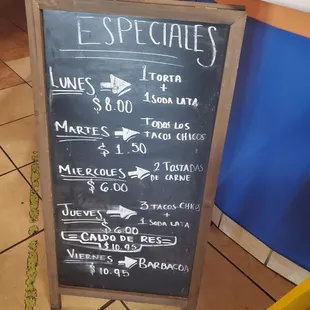 ESPECIALES
LUNES → 1 TORTA
+
$8.00 1 SODA LATA
MARTES → TODOS LOS
TACOS CHICOS
$1.50
MIERCOLES → 2 TOSTADAS
DE CARNE
$6.00
JUEVES → 3 TACOS CHICOS
+
$6.00 1 SODA LATA
CALDO DE RES
$10.95
VIERNES → BARBACOA
$10.95